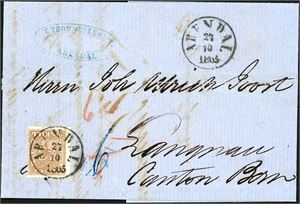 ARENDAL
ARENDAL
27
10
1865
Herrn Joh Ulrich Joost
ARENDAL
27
10
1865
6
Langnau
Canton Bern